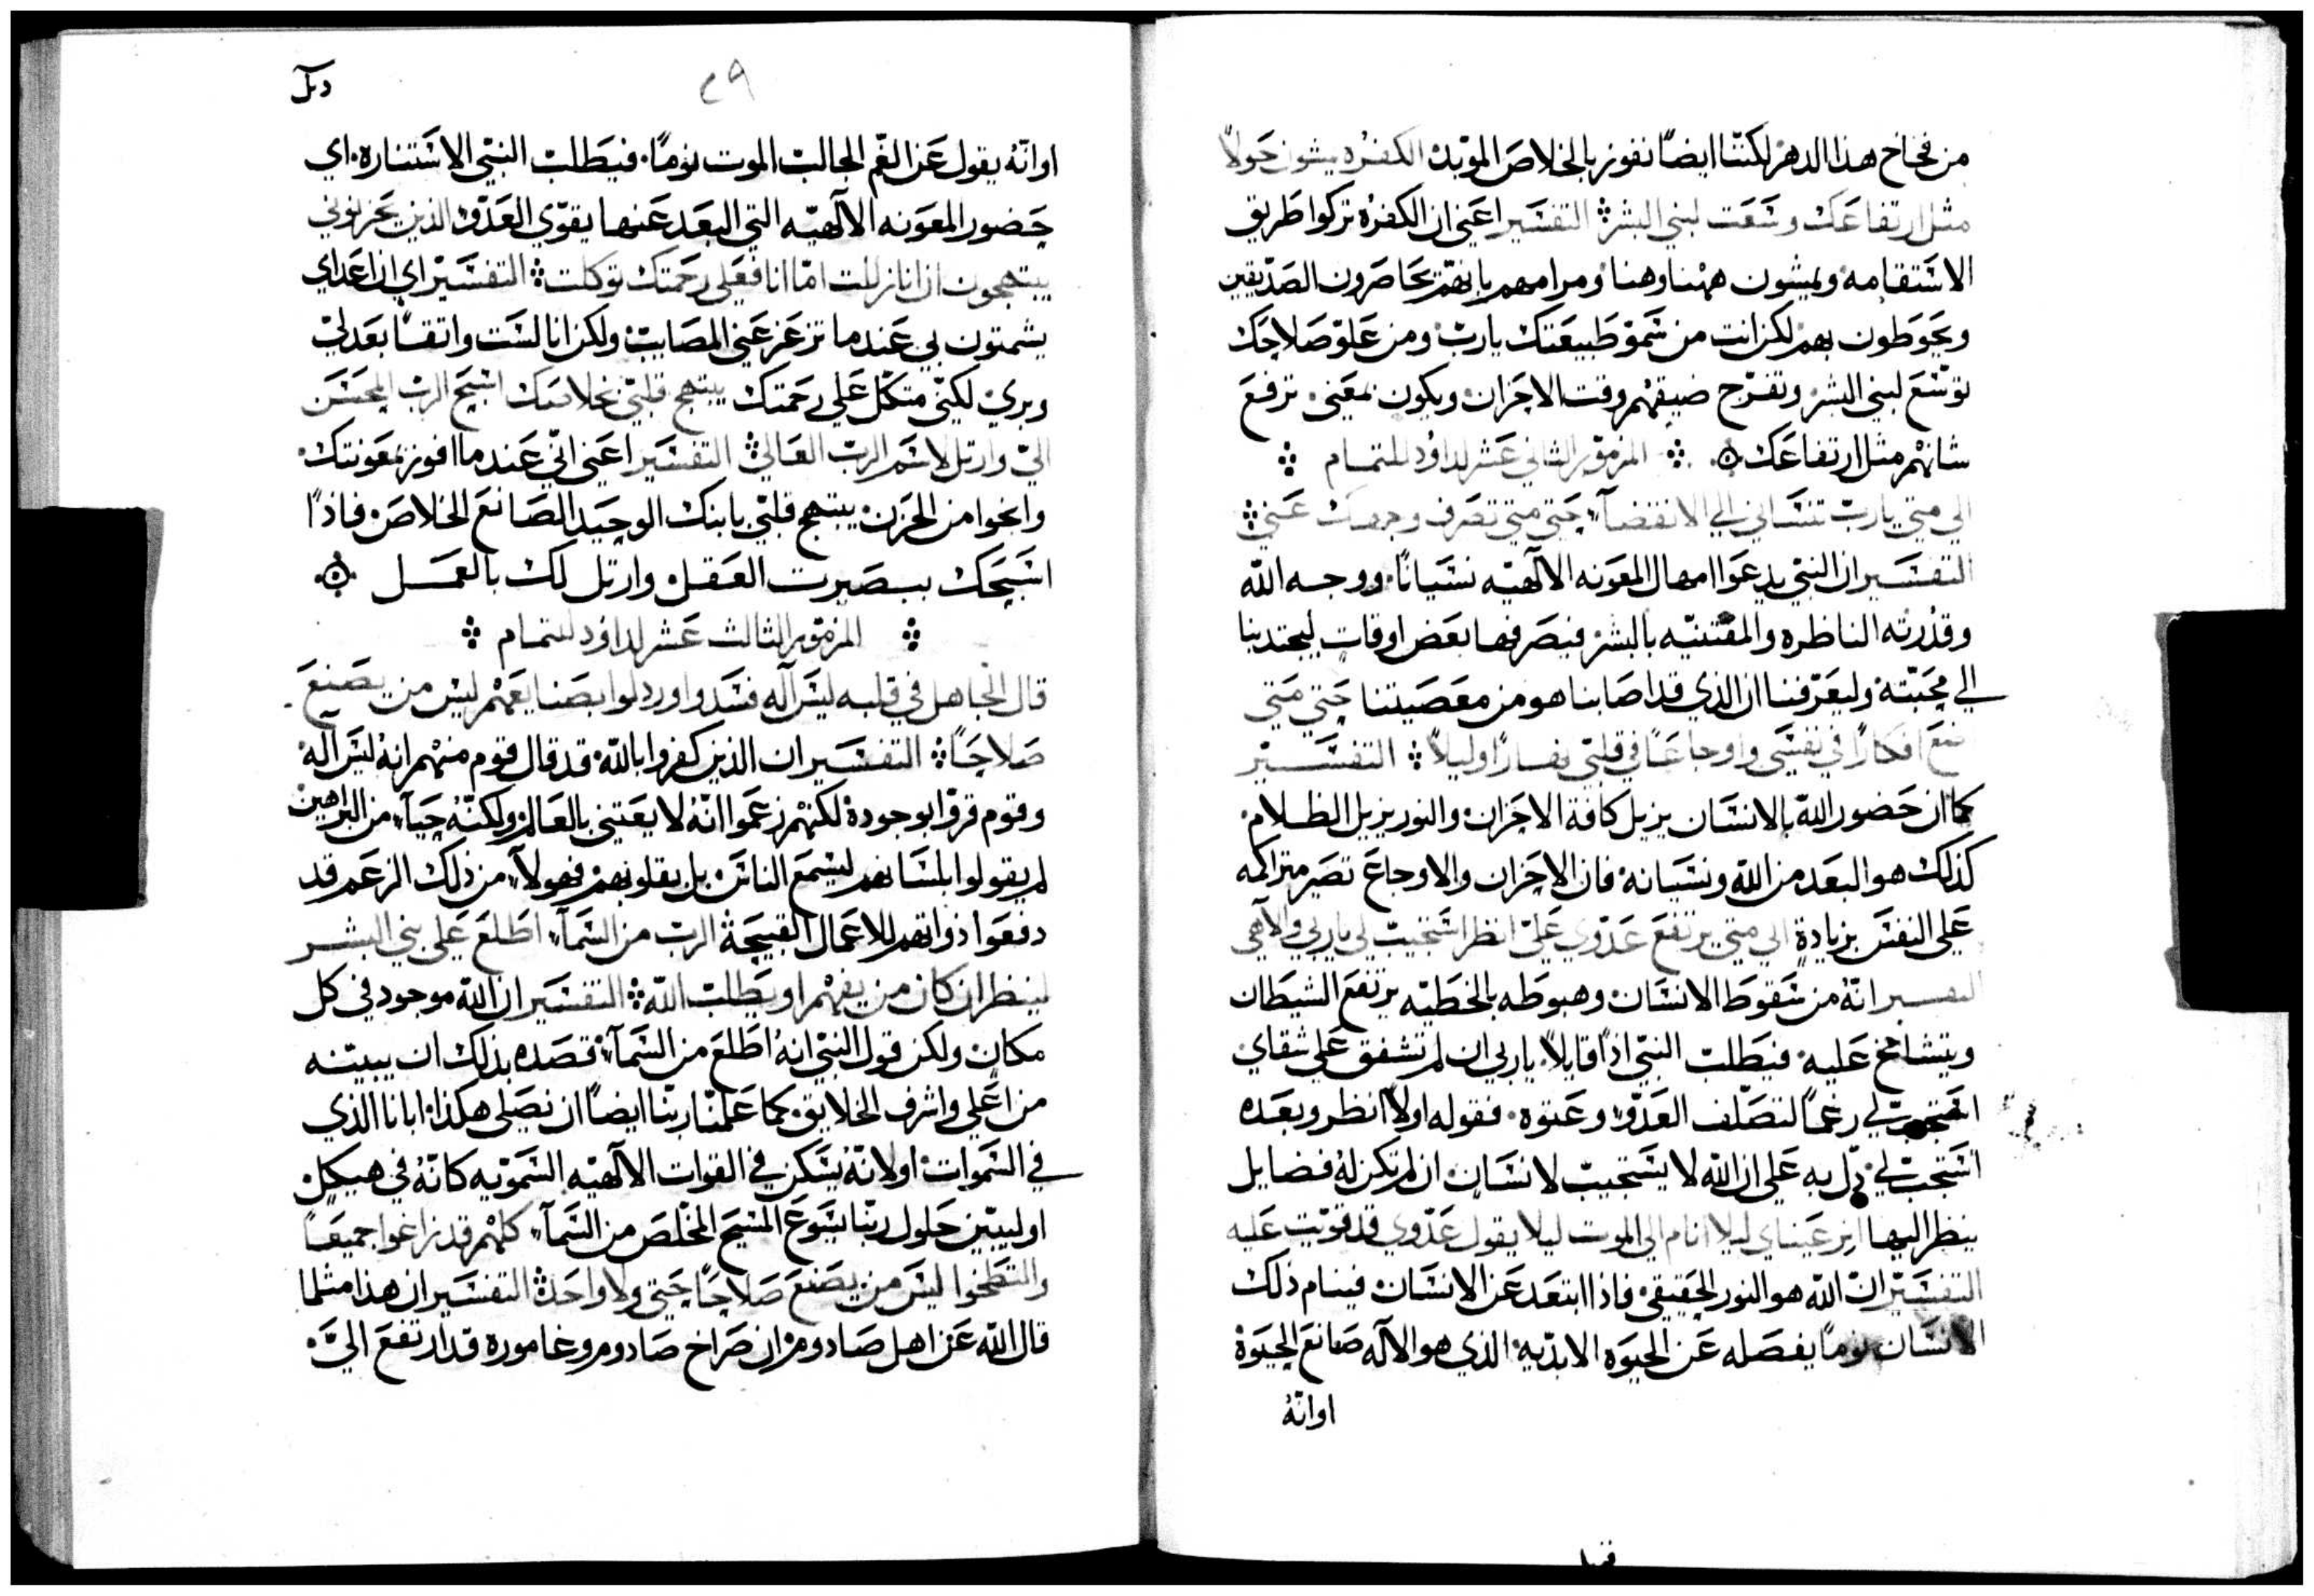 من فخاخ هذا الدهر لكننا ايضاً نفوز بالخلاص الموبد الكفره يمشون حولاً
مثل ارتفاعك وسعت لبني البشر التفسير اعني ان الكفره تركوا طريق
الاستقامه ويمشون ههنا وهنا ومرامهم بانهم يحاصرون الصديقين
ويحوطون بهم لكن انت من سمو طبيعتك يارب ومن علو صلاحك
توسع لبني البشر وتفرح ضيقهم وقت الاحزان ويكون بمعني ترفع
شانهم مثل ارتفاعك المزمور الثاني عشر لداود للتمام
الي متي يارب تنساني الي الانقضآ حتي متي تصرف وجهك عني
التفسير ان النبي يدعوا امهال المعونه الالهيه نسياناً ووجه الله
وقدرته الناظره والمقتنيه بالبشر فيصرفها بعض اوقات ليجتدبنا
الي محبته وليعرفنا ان الذي قد اصابنا هو من معصيتنا حتي متي
تضع افكاراً في نفسي واوجاعاً في قلبي نهاراً وليلاً التفسير
كما ان حضور الله بالانسان يزيل كافة الاحزان والنور يزيل الظلام
كذلك هو البعد من الله ونسيانه فان الاحزان والاوجاع تصير متراكمه
علي النفس بزيادة الي متي يرتفع عدوي علي انظر استجيب لي ياربي والاهي
التفسير انه من سقوط الانسان وهبوطه بالخطيه يرتفع الشيطان
ويتشامخ عليه فيطلب النبي اذاً قايلاً ياربي ان لم تشفق علي شقاي
استجب لي رغماً لتصلف العدو وعتوه فقوله اولاً انظر وبعده
استجب لي دل به علي ان الله لا يستجيب لانسان ان لم تكن له فضايل
ينظر اليها انر عيناي ليلا انام الي الموت ليلا يقول عدوي قد قويت عليه
التفسير ان الله هو النور الحقيقي فاذا ابتعد عن الانسان فينام ذلك
الانسان نوماً يفصله عن الحيوه الابديه الذي هو الاله صانع الحيوة
اوانه
٢٩
اوانه يقول عن الغم الجالب الموت نوماً فيطلب النبي الاستناره اي
حضور المعونه الالهيه التي البعد عنها يقوي العدو الذين يحزنوني
يبتهجون ان انا زللت اما انا فعلي رحمتك توكلت التفسير اي ان اعداي
يشمتون بي عندما تزعزعني المصايب ولكن انا لست واتقاً بعدلي
وبري لكني متكل علي رحمتك يبتهج قلبي بخلاصك اسبح الرب المحسن
الي وارتل لاسم الرب العالي التفسير اعني اني عندما افوز بمعونتك
وانجوا من الحزن يبتهج قلبي بابنك الوحيد الصانع الخلاص فاذاً
اسبحك ببصيرت العقل وارتل لك بالعمل
المزمور الثالث عشر لداود للتمام
قال الجاهل في قلبه ليس اله فسدوا ورذلوا بصنايعهم ليس من يصنع
صلاحاً التفسير ان الذين كفروا بالله قد قال قوم منهم انه ليس اله
وقوم قروا بوجوده لكنهم زعموا انه لا يعتني بالعالم ولكنه حيآ من البراهين
لم يقولوا بلسانهم ليسمع الناس بل بقلوبهم فهولآ من ذلك الزعم قد
دفعوا ذواتهم للاعمال القبيحة الرب من السمآ اطلع علي بني البشر
لينظر ان كان من يفهم او يطلب الله التفسير ان الله موجود في كل
مكان ولكن قول النبي انه اطلع من السمآ قصده بذلك ان يبينه
من اعلي واشرف الخلايق كما علمنا ربنا ايضاً ان نصلي هكذا ابانا الذي
في السموات اولانه يسكن في القوات الالهيه السمويه كانه في هيكل
او ليبين حلول ربنا يسوع المسيح المخلص من السمآ كلهم قد زاغوا جميعاً
والتطخوا ليس من يصنع صلاحاً حتي ولا واحد التفسير ان هذا مثلما
قال الله عن اهل صادوم ان صراخ صادوم وغاموره قد ارتفع الي